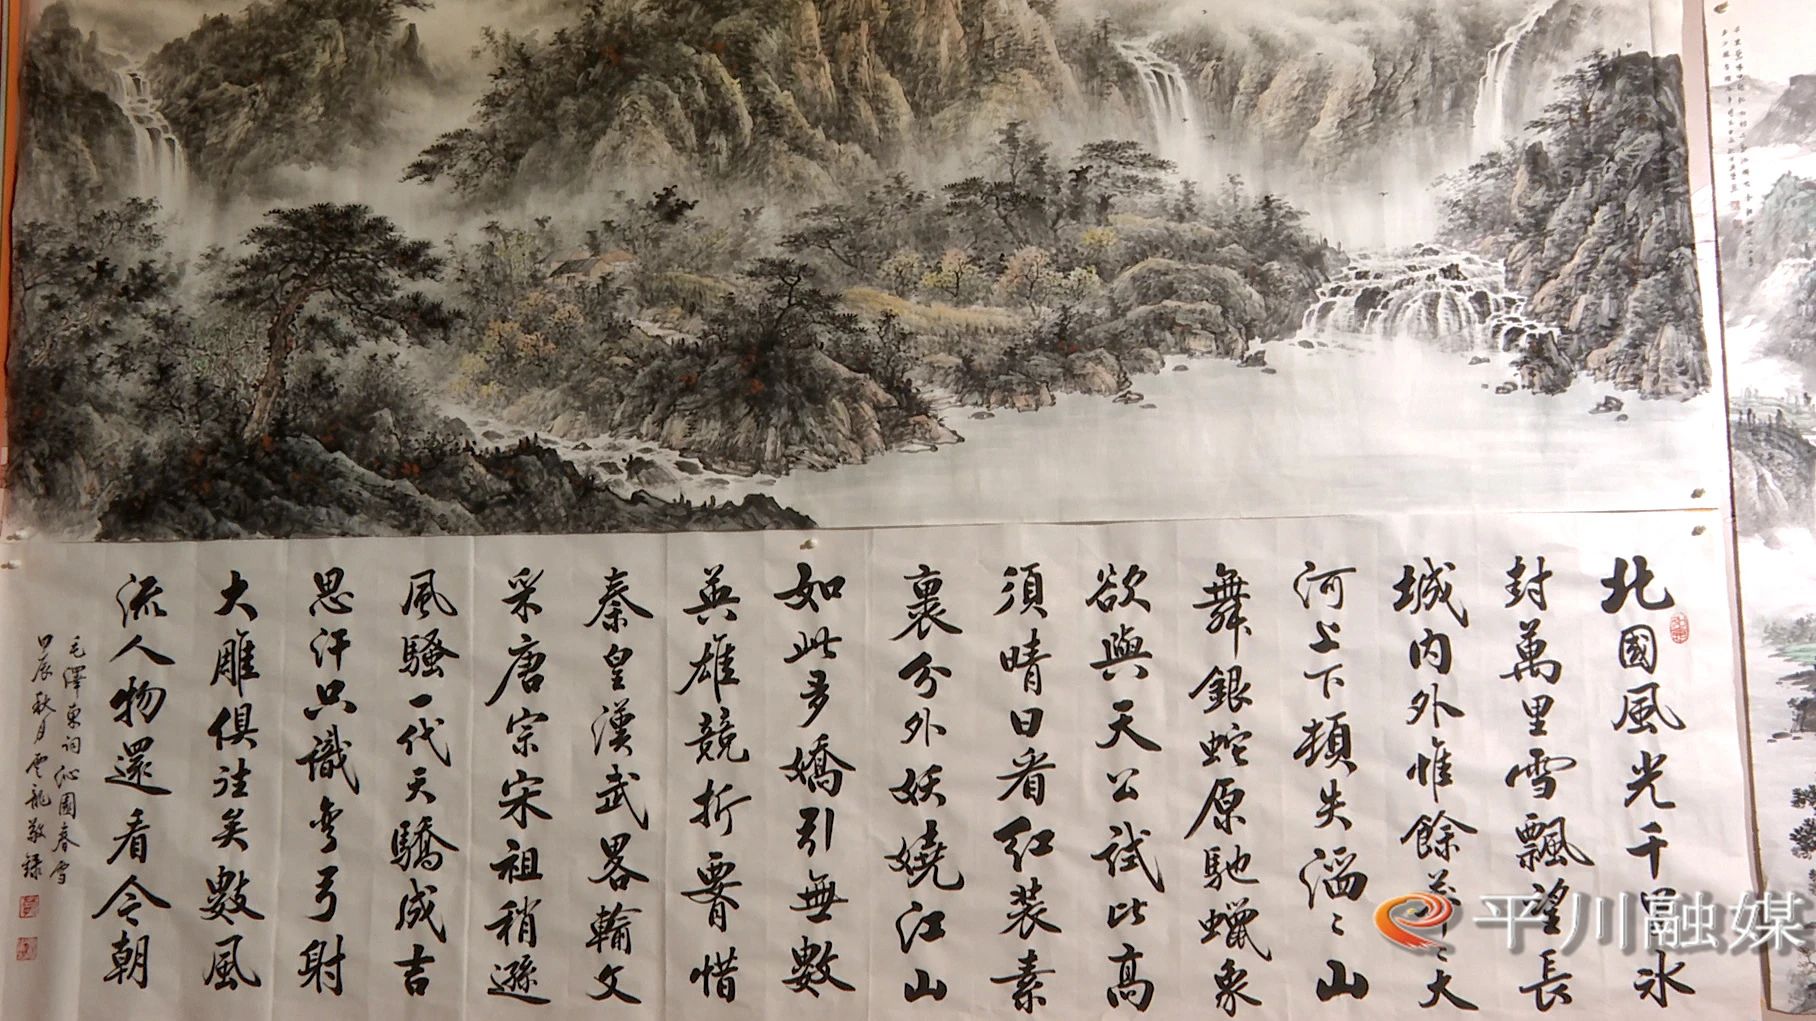 北國風光千里冰
封萬里雪飄望長
城内外惟餘莽〻大
河上下頓失滔〻山
舞銀蛇原馳蠟象
欲與天公試比高
須晴日看紅裝素
裹分外妖嬈江山
如此多嬌引無數
英雄競折腰惜
秦皇漢武畧輸文
采唐宗宋祖稍遜
風騷一代天驕成吉
思汗只識彎弓射
大雕俱往矣數風
流人物還看今朝
毛澤東詞沁園春雪
甲辰秋月雲龍敬録
平川融媒